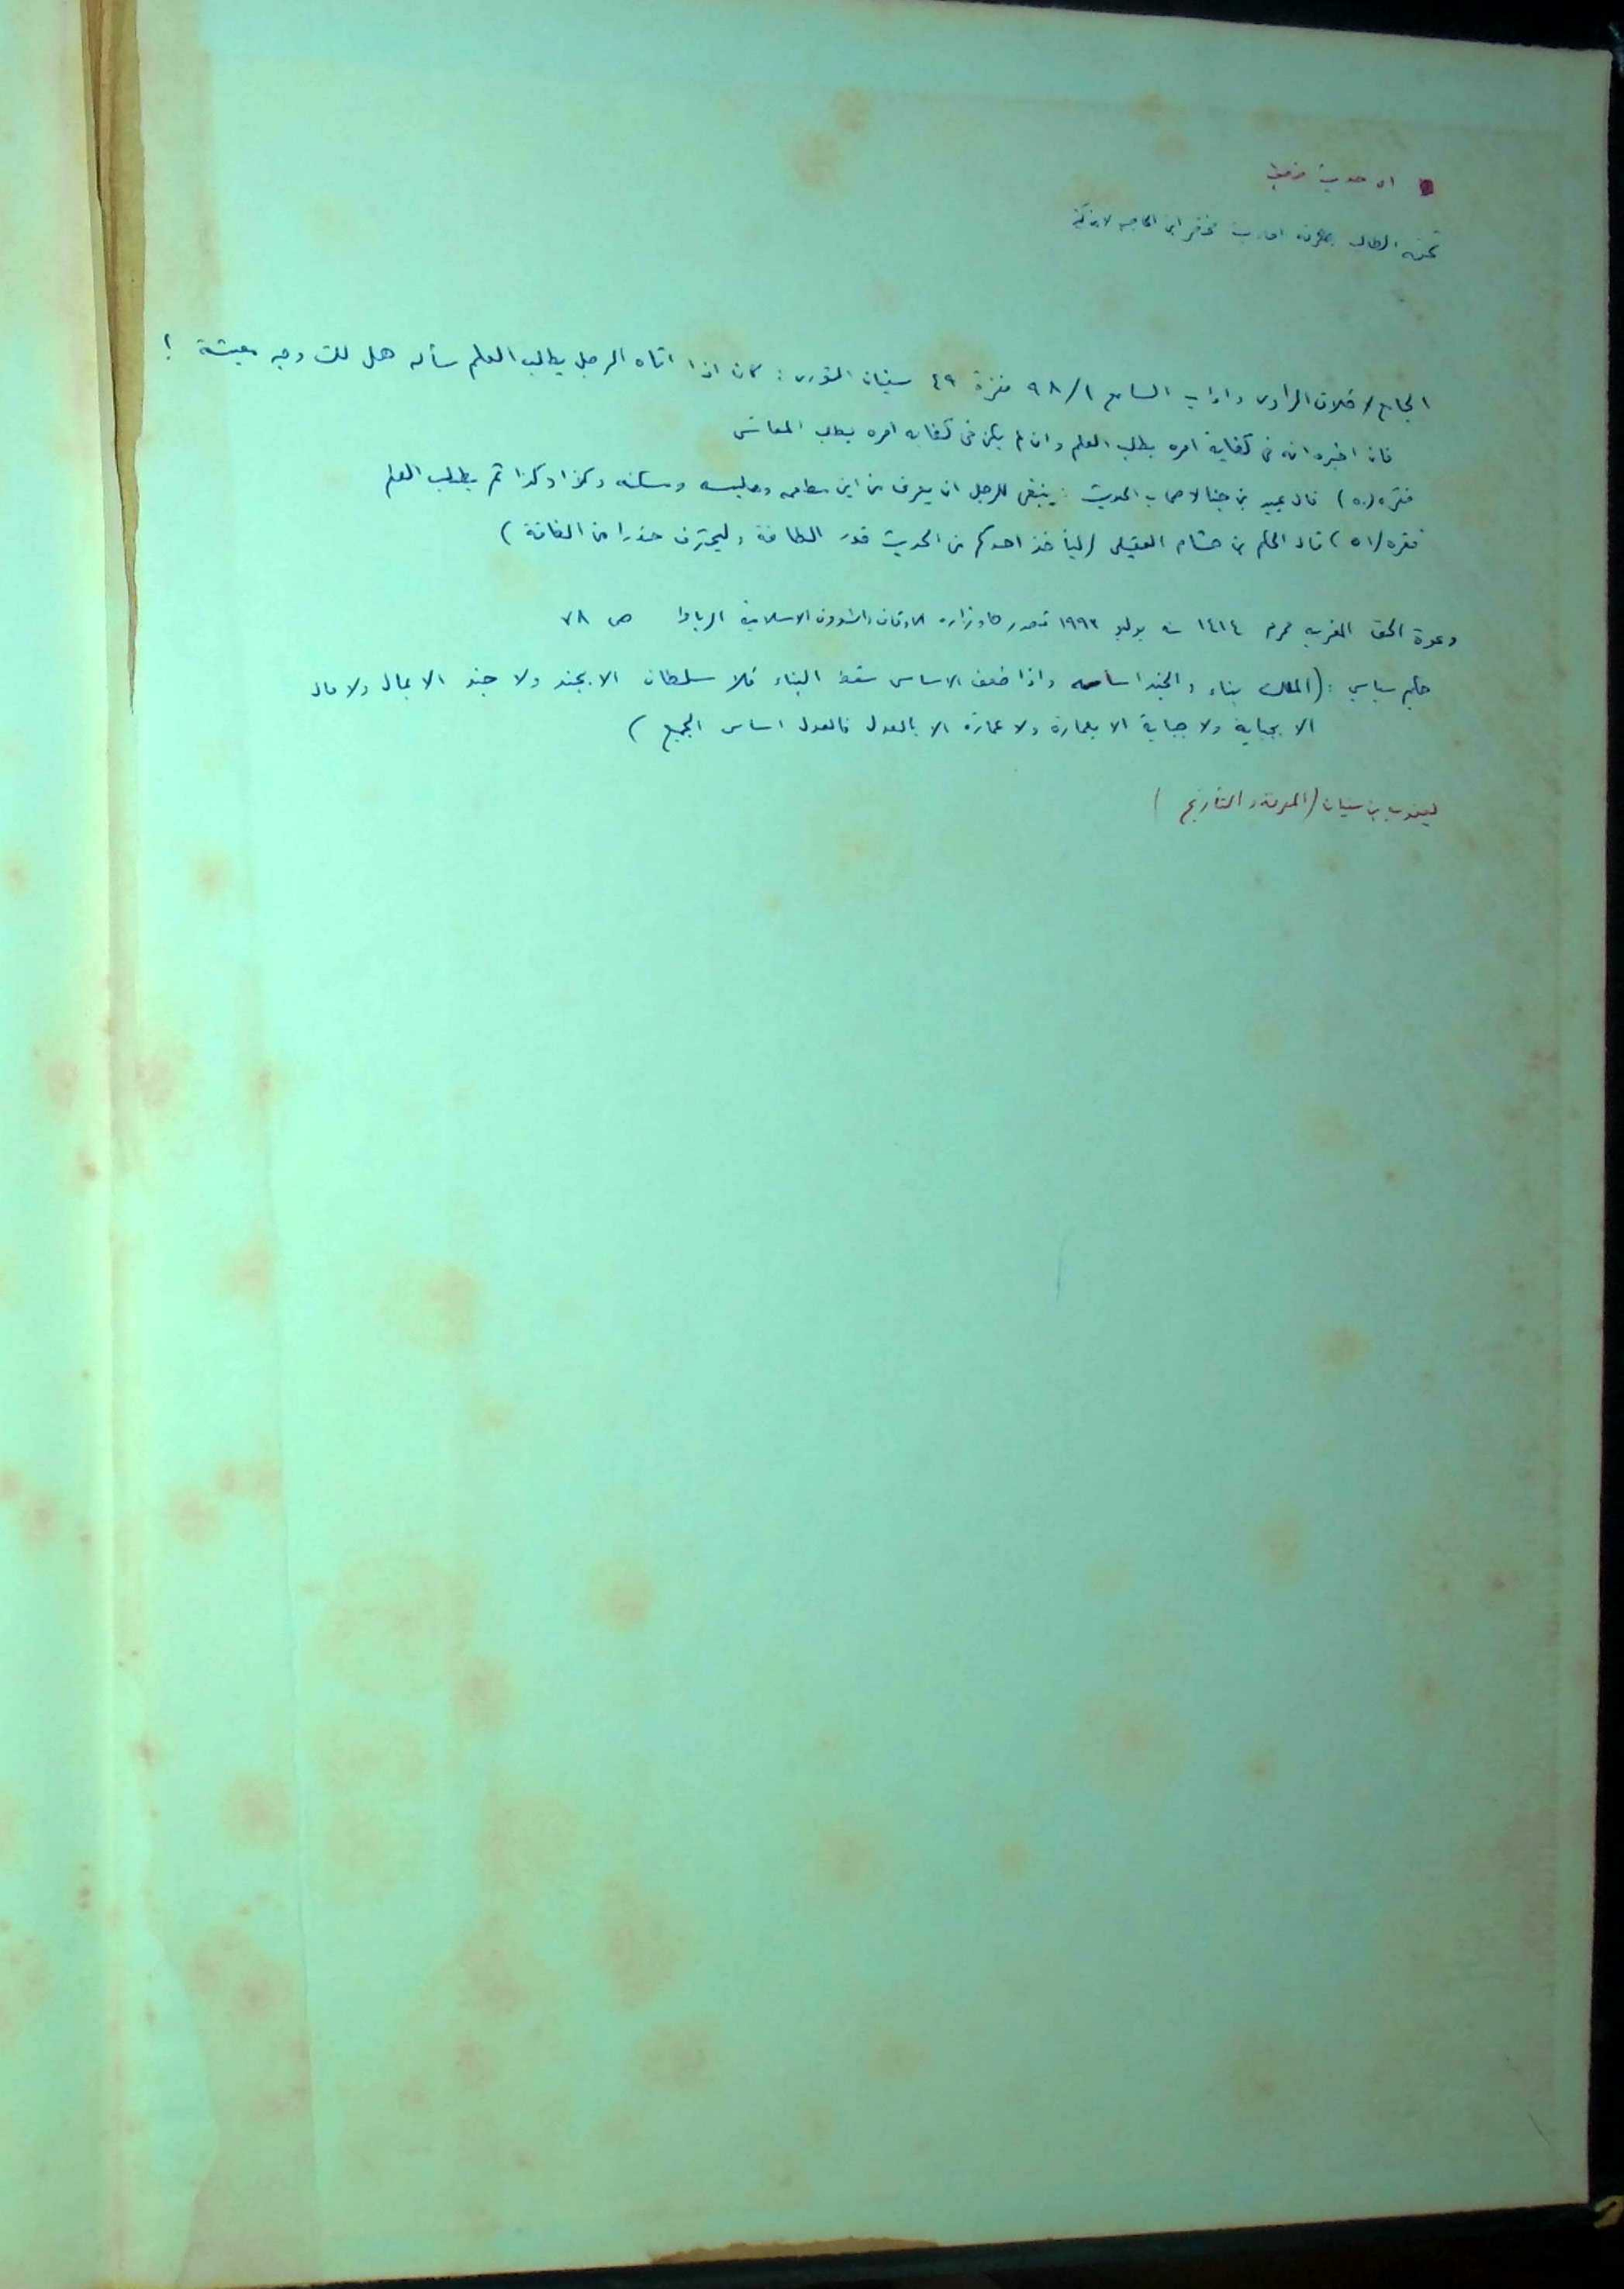 تحفة الطالب بمعرفة احاديث مختصر ابن الحاجب لابن كثير
الجامع لاخلاق الراوى واداب السامع ٩٨/١ فقرة ٤٩ سفيان الثورى : كان اذا اتاه الرجل يطلب العلم سأله هل لك وجه معيشة ؟
فان اخبره انه فى كفاية امره بطلب العلم وان لم يكن فى كفاية امره بطلب المعاش
فقره (٥٠) قال عبيد بن جناد لاصحاب الحديث : ينبغى للرجل ان يعرف من اين مطعمه وملبسه ومسكنه وكذا وكذا ثم يطلب العلم
فقره (٥١) قال الحكم بن هشام العقيلى (ليأخذ احدكم من الحديث قدر الطاقة وليحترف حذرا من الفاقة)
دعوة الحق المغربيه محرم ١٤١٤ يوليو ١٩٩٣ تصدرها وزارة الاوقاف والشوون الاسلامية الرباط ص ٧٨
حكيم سياسي : (الملك بناء والجند اساسه واذا ضعف الاساس سقط البناء فلا سلطان الا بجند ولا جند الا بمال ولا مال
الا بجباية ولا جباية الا بعمارة ولا عمارة الا بالعدل فالعدل اساس الجميع)
ليعقوب بن سفيان (المعرفة والتاريخ)